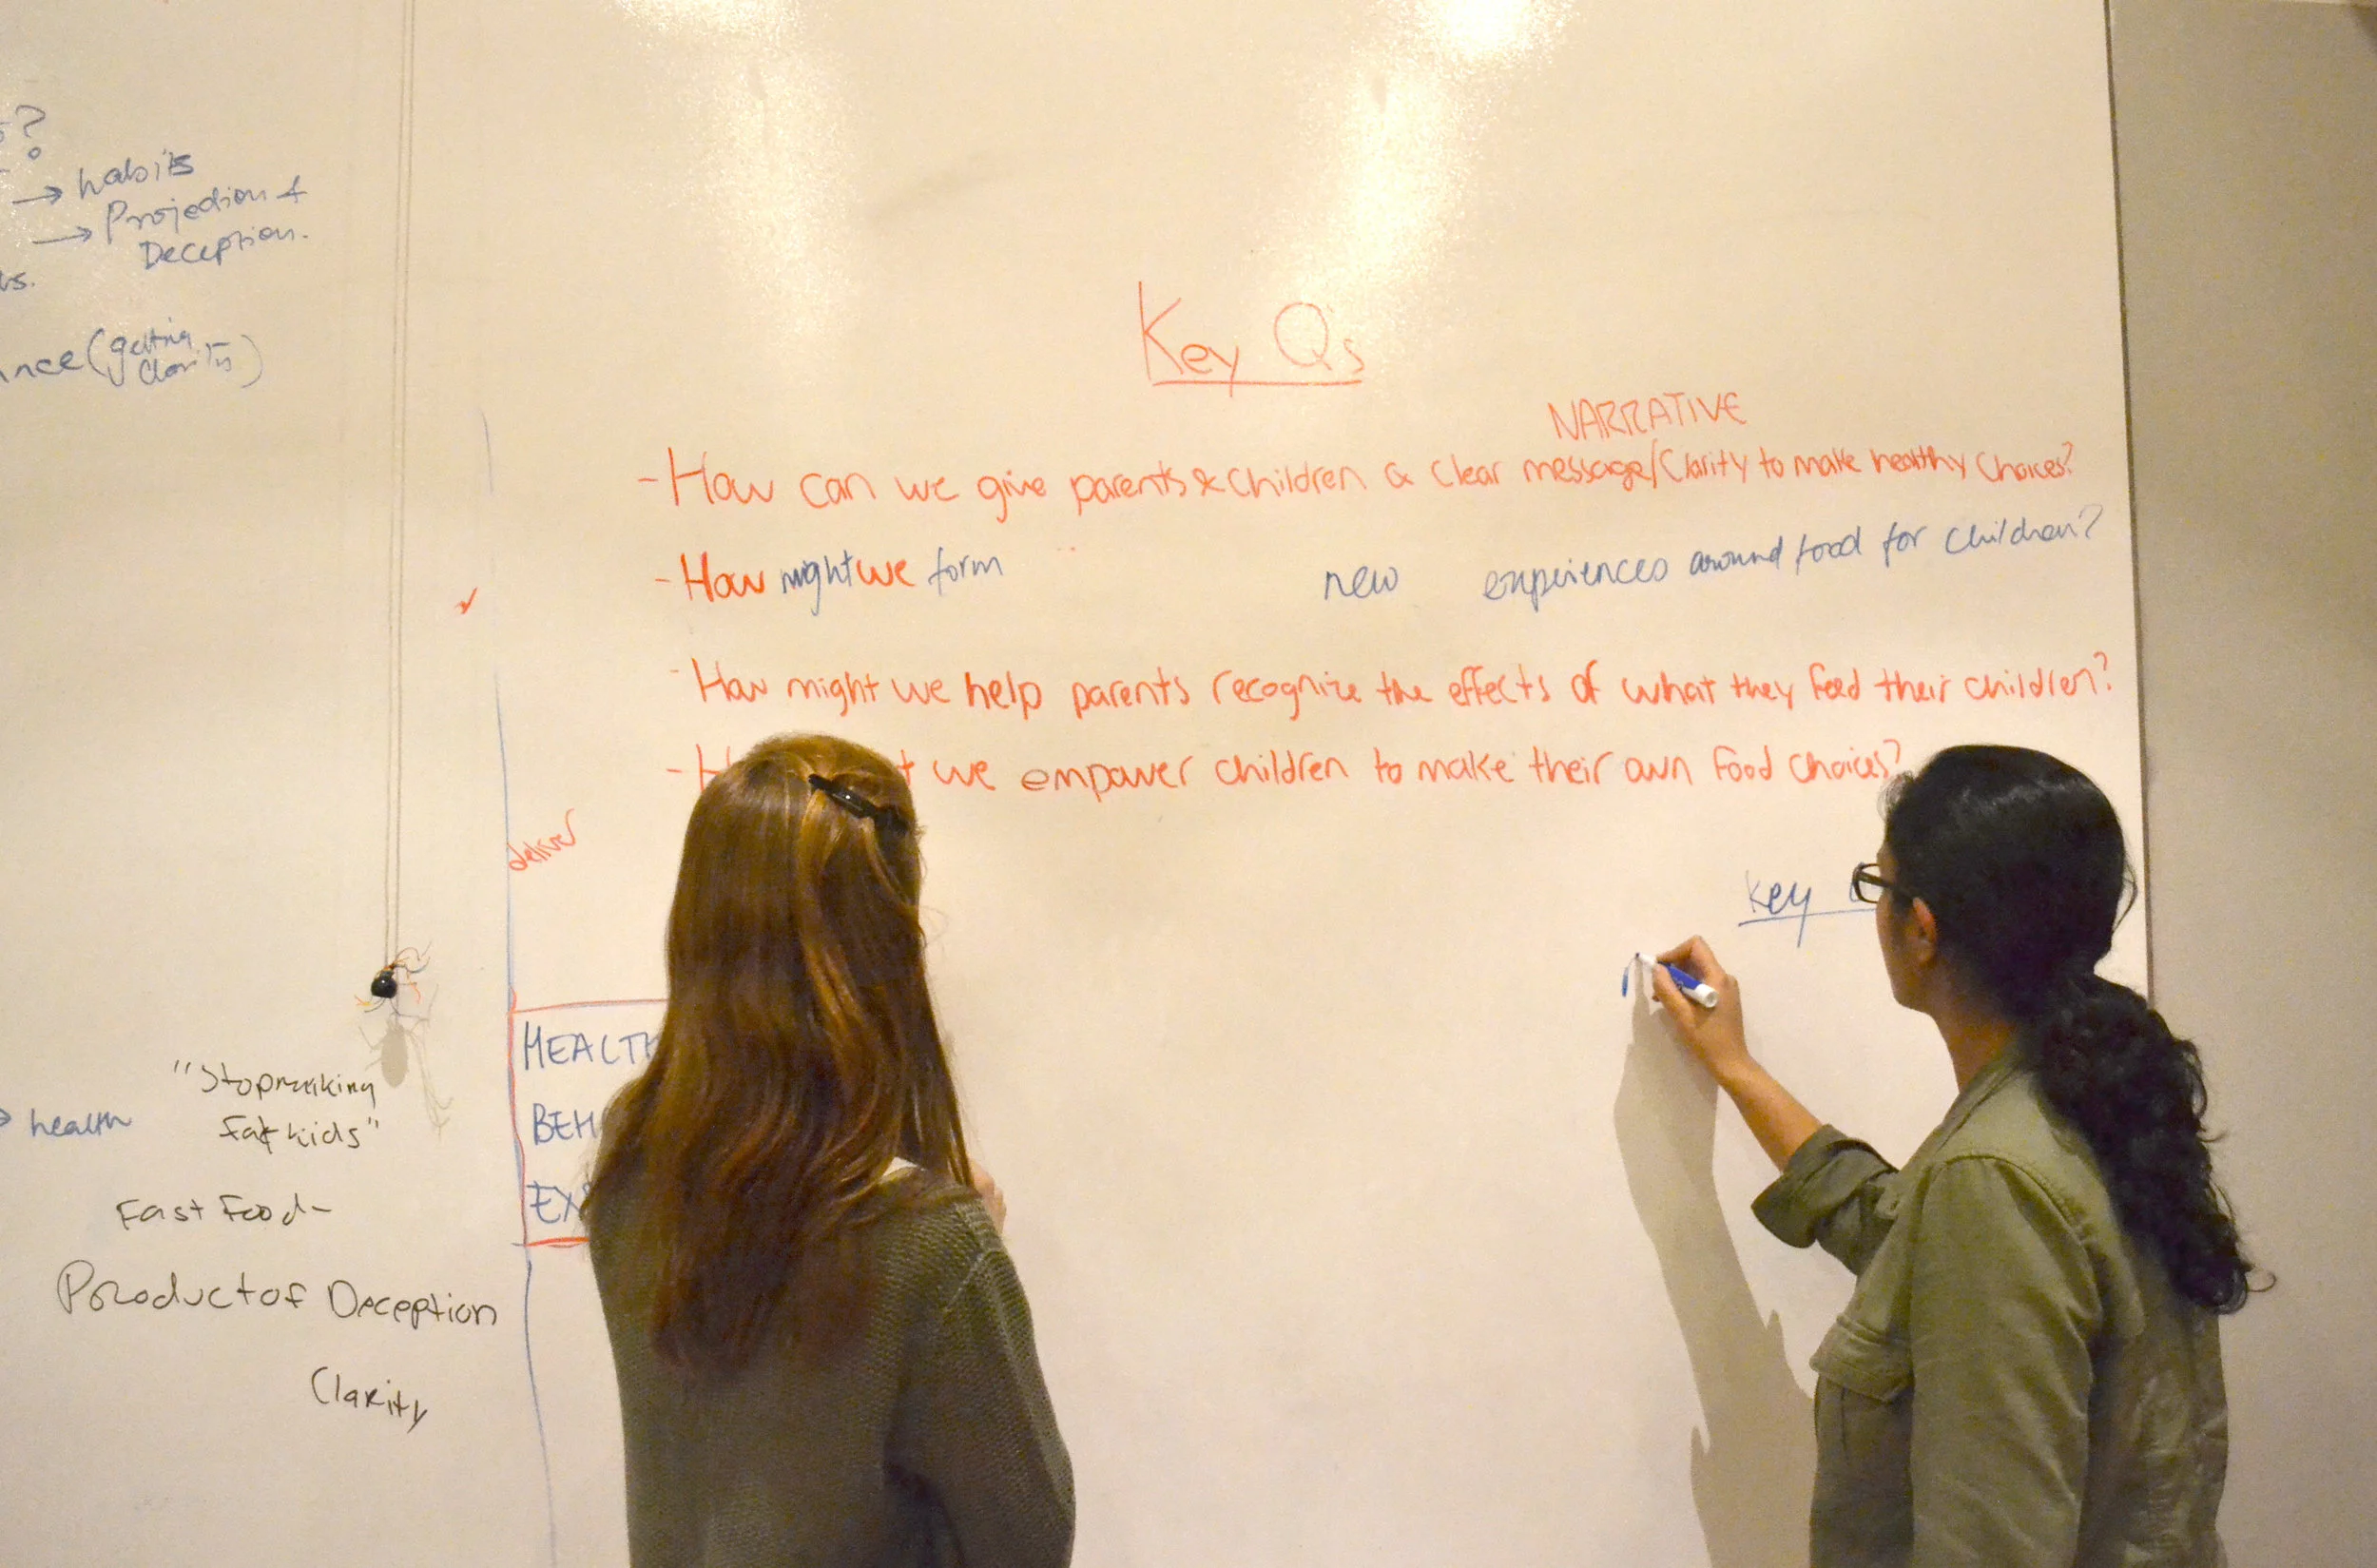 ?
→ habits
→ Projection +
Deception.
(getting
clarity)
Key Qs
NARRATIVE
- How can we give parents & children a clear message/clarity to make healthy choices?
- How might we form new experiences around food for children?
- How might we help parents recognize the effects of what they feed their children?
- we empower children to make their own food choices?
deliver
Key
HEALTH
BEH
EX
health
"Stop making
fat kids"
Fast Food-
Product of Deception
Clarity